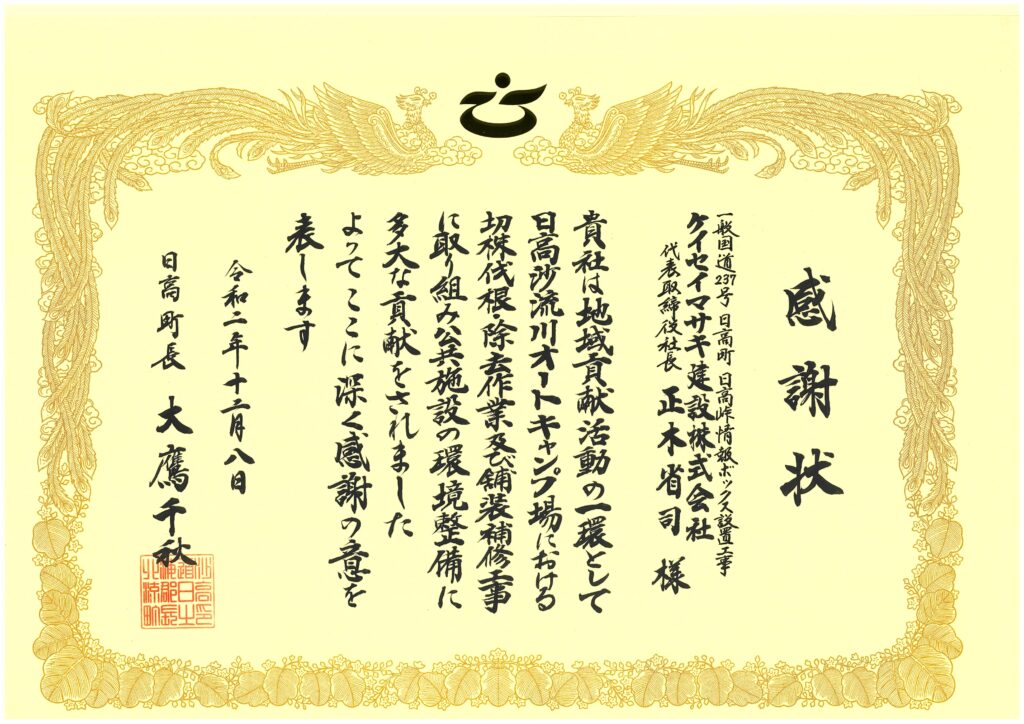 感謝状
一般国道237号 日高町 日高峠情報ボックス設置工事
ケイセイマサキ建設株式会社
代表取締役社長 正木省司 様
貴社は地域貢献活動の一環として
日高沙流川オートキャンプ場における
切株伐根・除去作業及び舗装補修工事
に取り組み公共施設の環境整備に
多大な貢献をされました
よってここに深く感謝の意を
表します
令和二年十二月八日
日高町長 大鷹千秋